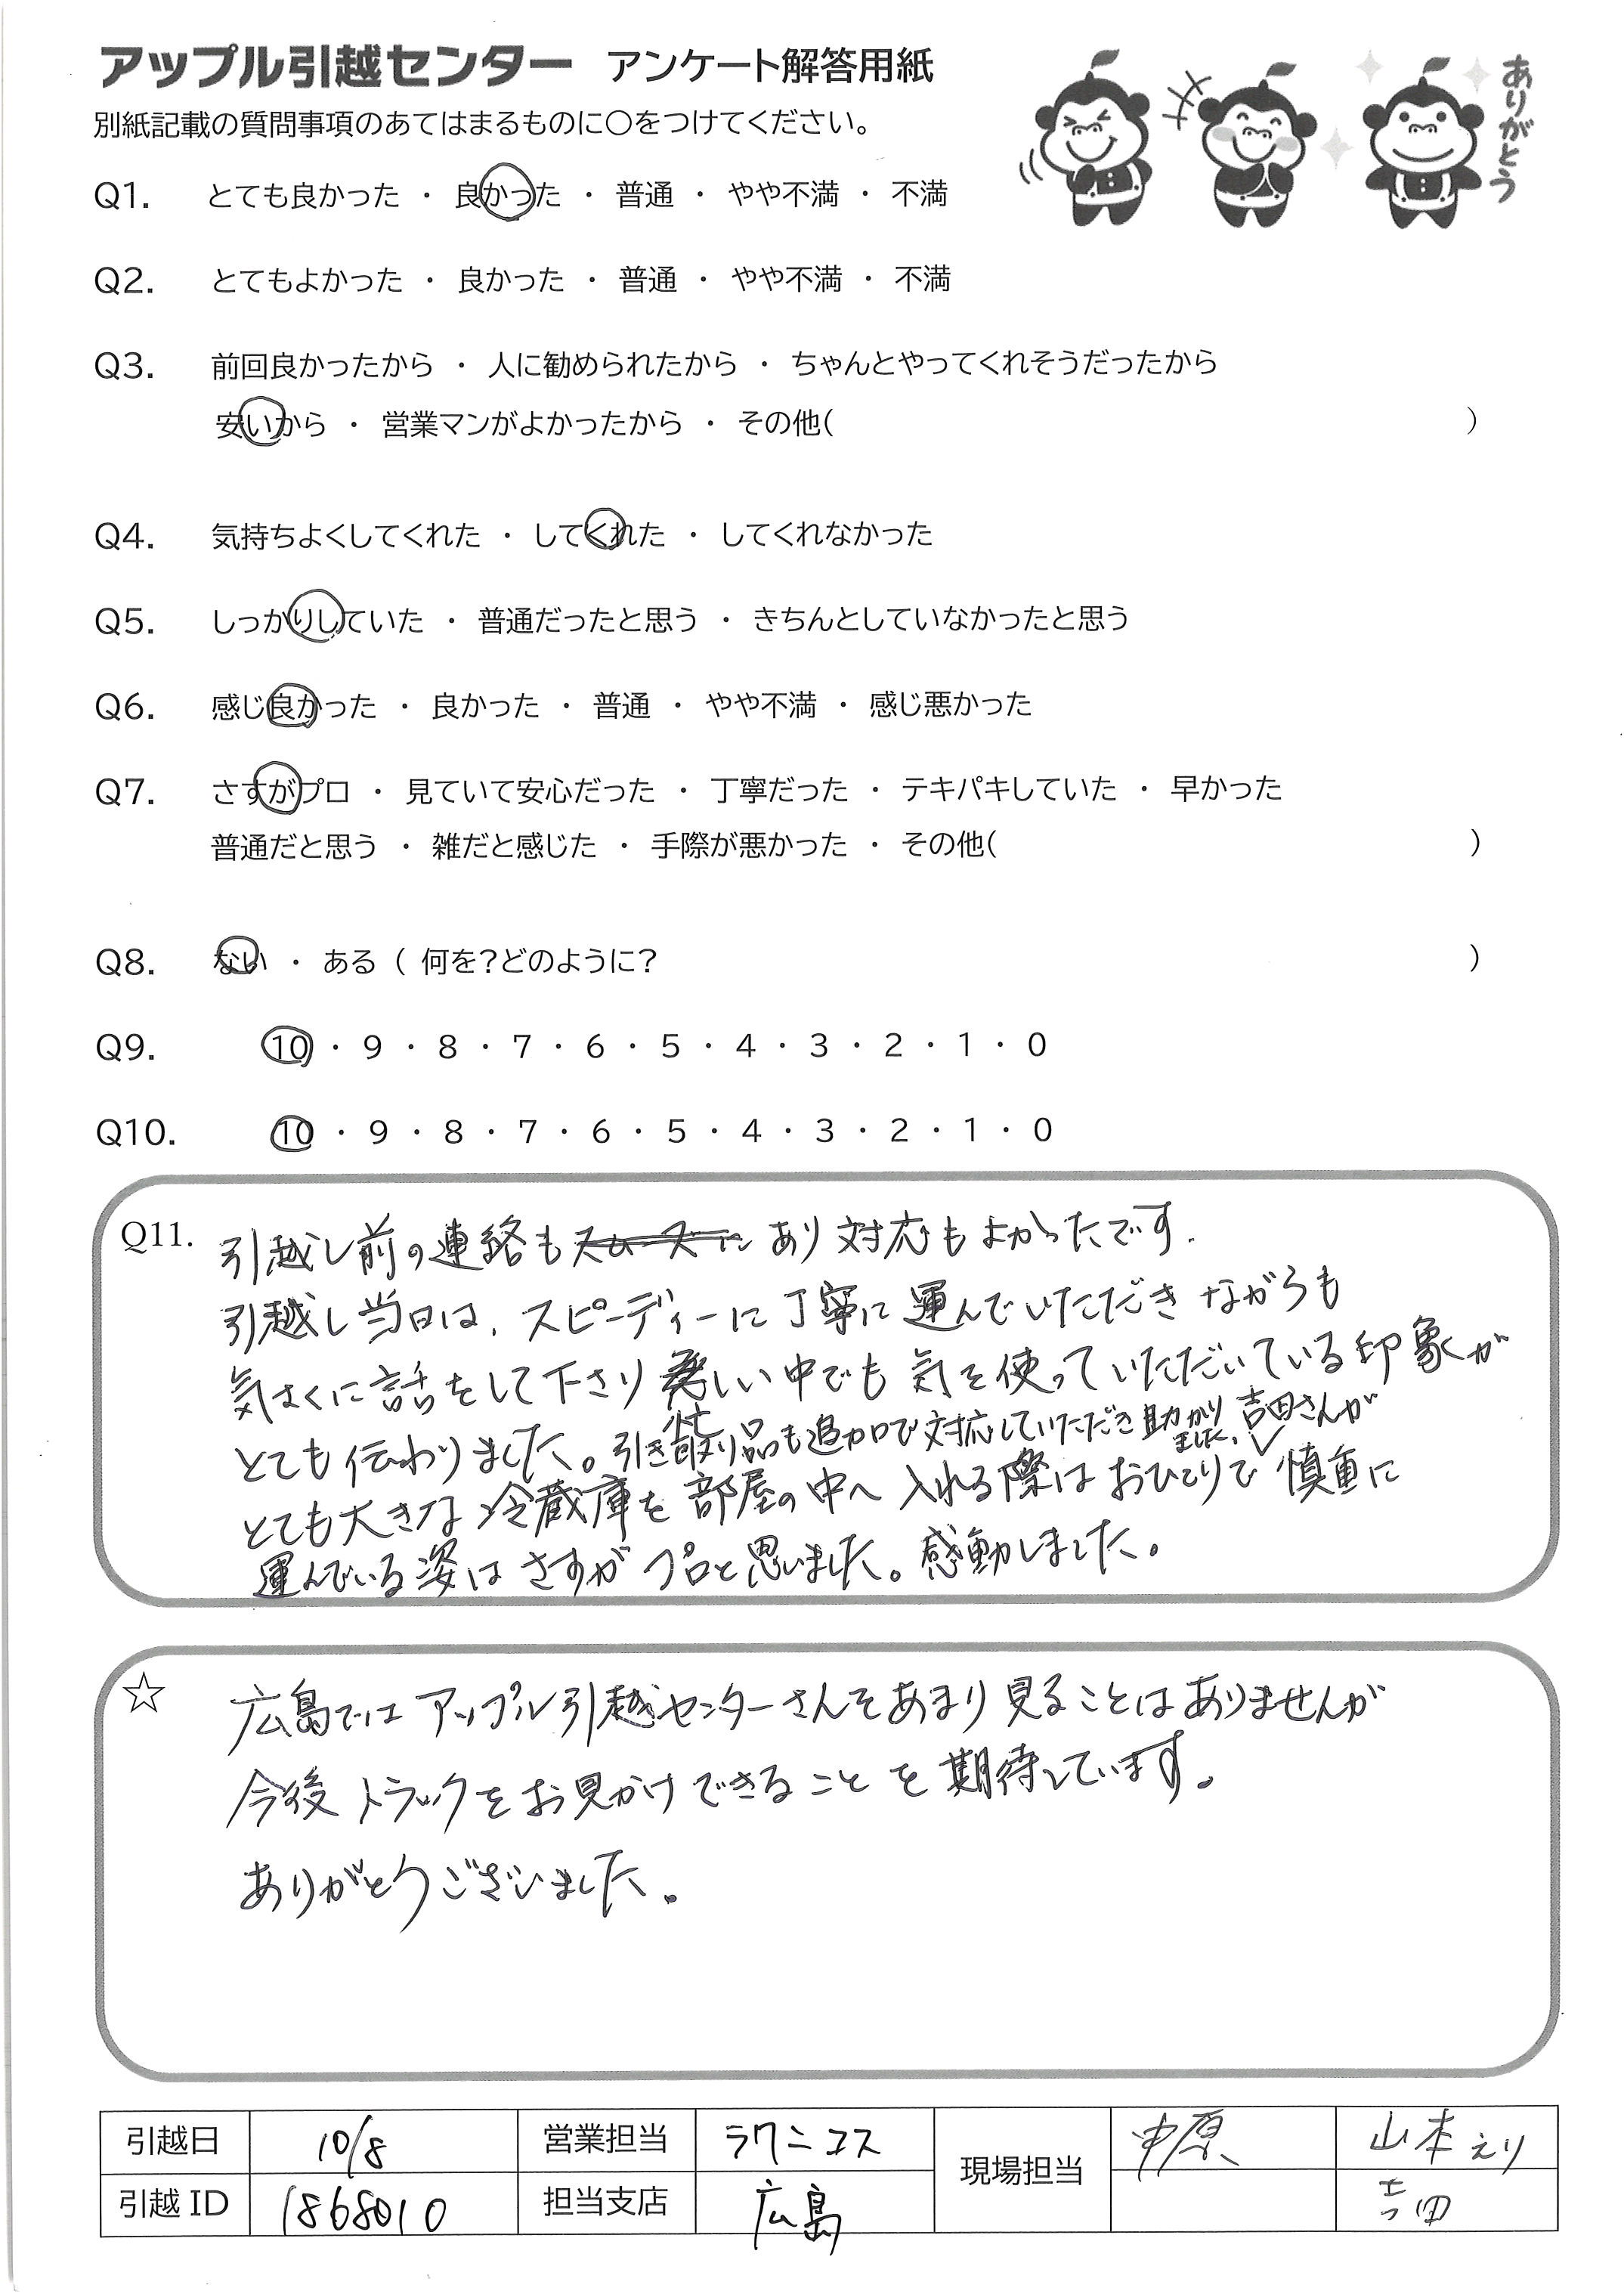 アップル引越センター アンケート解答用紙
ありがとう
別紙記載の質問事項のあてはまるものに〇をつけてください。
Q1. とても良かった ・ 良かった ・ 普通 ・ やや不満 ・ 不満
Q2. とてもよかった ・ 良かった ・ 普通 ・ やや不満 ・ 不満
Q3. 前回良かったから ・ 人に勧められたから ・ ちゃんとやってくれそうだったから
安いから ・ 営業マンがよかったから ・ その他( )
Q4. 気持ちよくしてくれた ・ してくれた ・ してくれなかった
Q5. しっかりしていた ・ 普通だったと思う ・ きちんとしていなかったと思う
Q6. 感じ良かった ・ 良かった ・ 普通 ・ やや不満 ・ 感じ悪かった
Q7. さすがプロ ・ 見ていて安心だった ・ 丁寧だった ・ テキパキしていた ・ 早かった
普通だと思う ・ 雑だと感じた ・ 手際が悪かった ・ その他( )
Q8. ない ・ ある ( 何を?どのように? )
Q9. 10 ・ 9 ・ 8 ・ 7 ・ 6 ・ 5 ・ 4 ・ 3 ・ 2 ・ 1 ・ 0
Q10. 10 ・ 9 ・ 8 ・ 7 ・ 6 ・ 5 ・ 4 ・ 3 ・ 2 ・ 1 ・ 0
Q11. 引越し前の連絡もスムーズに あり 対応もよかったです.
引越し当日は、スピーディーに丁寧に運んでいただきながらも
気さくに話をして下さり 忙しい中でも 気を使っていただいている印象が
とても伝わりました。引き取り品も追加で対応していただき助かりました。吉田さんが
とても大きな冷蔵庫を部屋の中へ入れる際はおひとりで慎重に
運んでいる姿はさすがプロと思いました。感動しました。
☆ 広島ではアップル引越センターさんをあまり見ることはありませんが
今後トラックをお見かけできることを期待しています。
ありがとうございました。
引越日 10/8 営業担当 ラクニコス 現場担当 中原 山本えり
引越ID 1868010 担当支店 広島 吉田